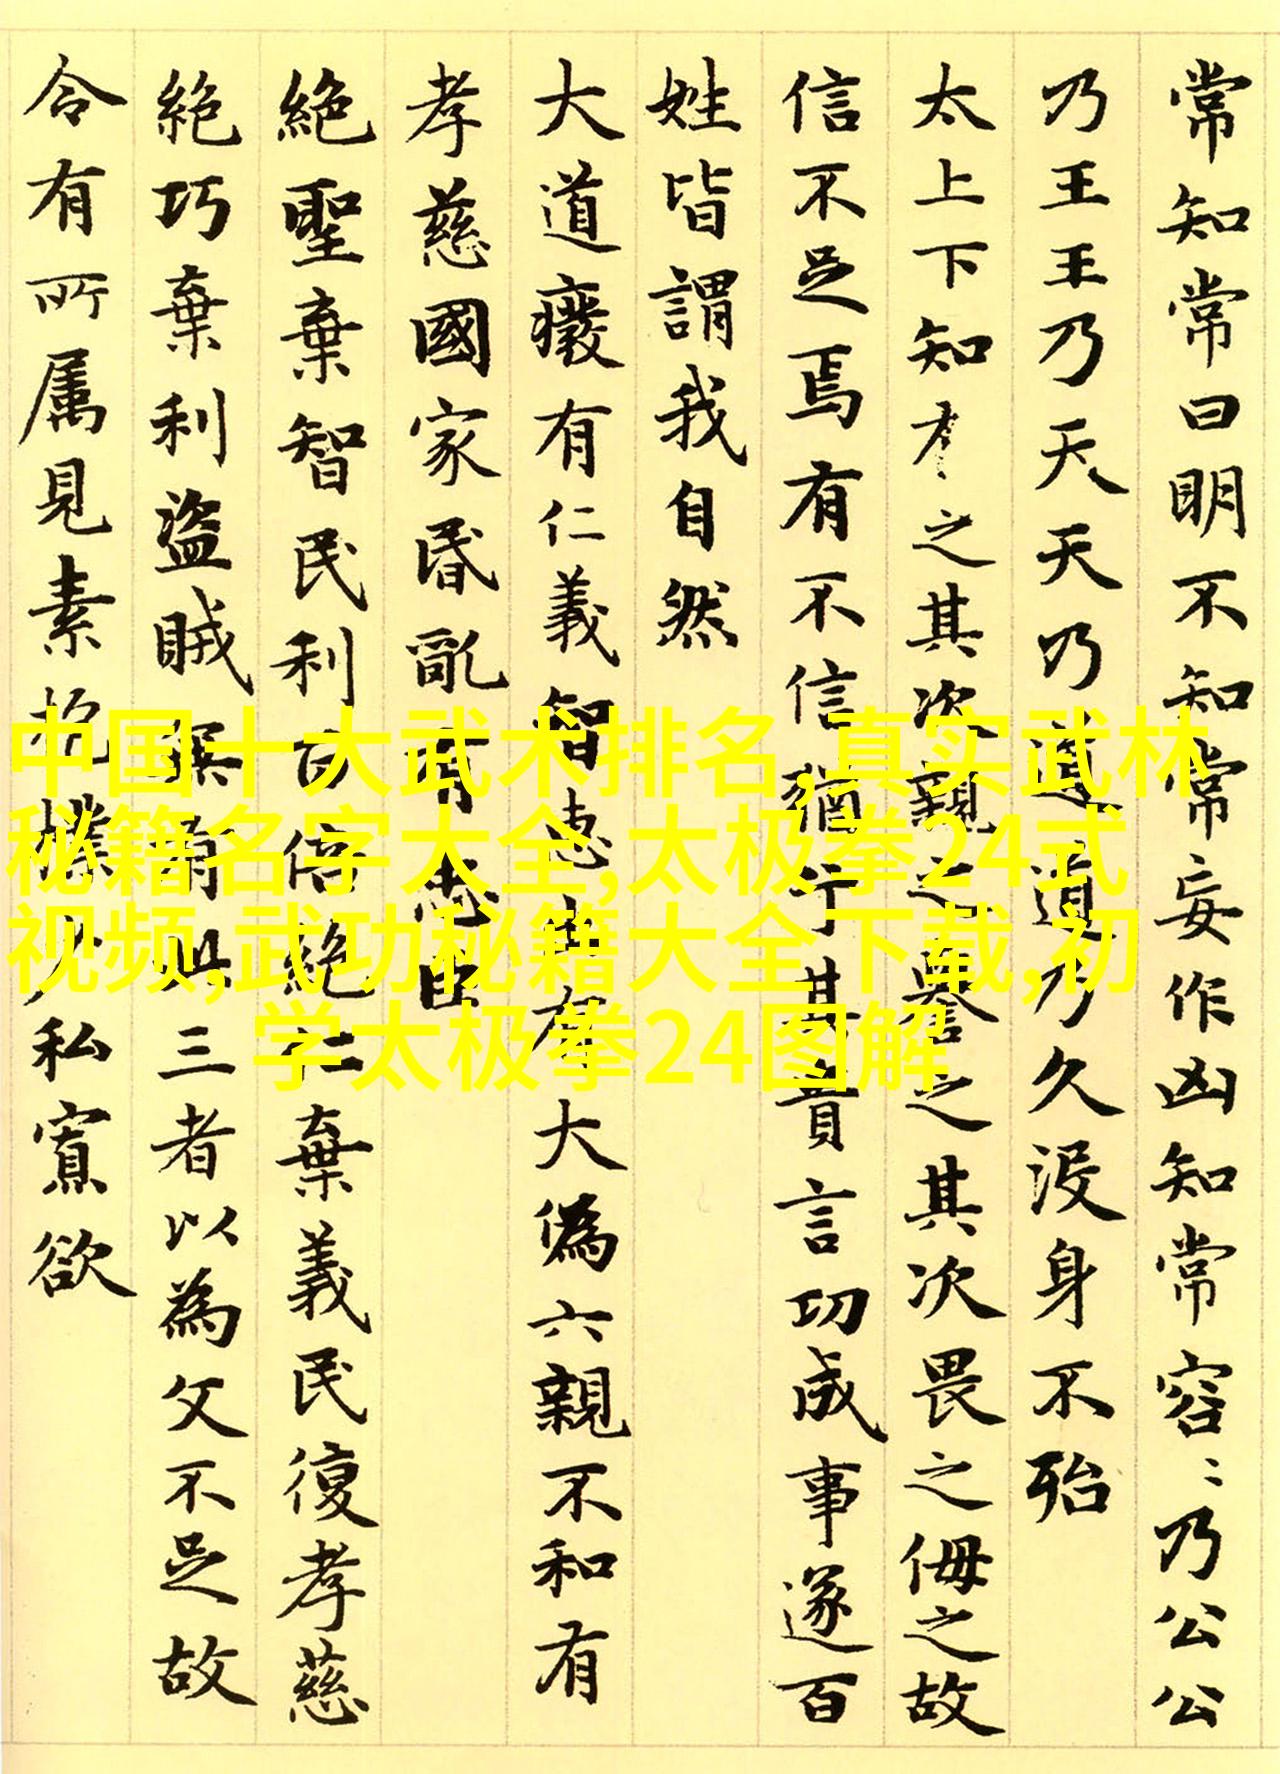 常知常曰明不知常妄作凶知常容〻乃公公
乃王王乃天天乃道道乃久没身不殆
太上下知之其次親之譽之其次畏之侮之故
信不足焉有不信猶兮其貴言功成事遂百
姓皆謂我自然
大道癈有仁義智惠出有大偽六親不和有
孝慈國家昬亂有忠臣
絶聖棄智民利百倍絶仁棄義民復孝慈
絶巧棄利盜賊無有此三者以為文不足故
令有所属見素抱樸少私寡欲
中国十大武术排名,真实武林
秘籍名字大全,太极拳24式
视频,武功秘籍大全下载,初
学太极拳24图解